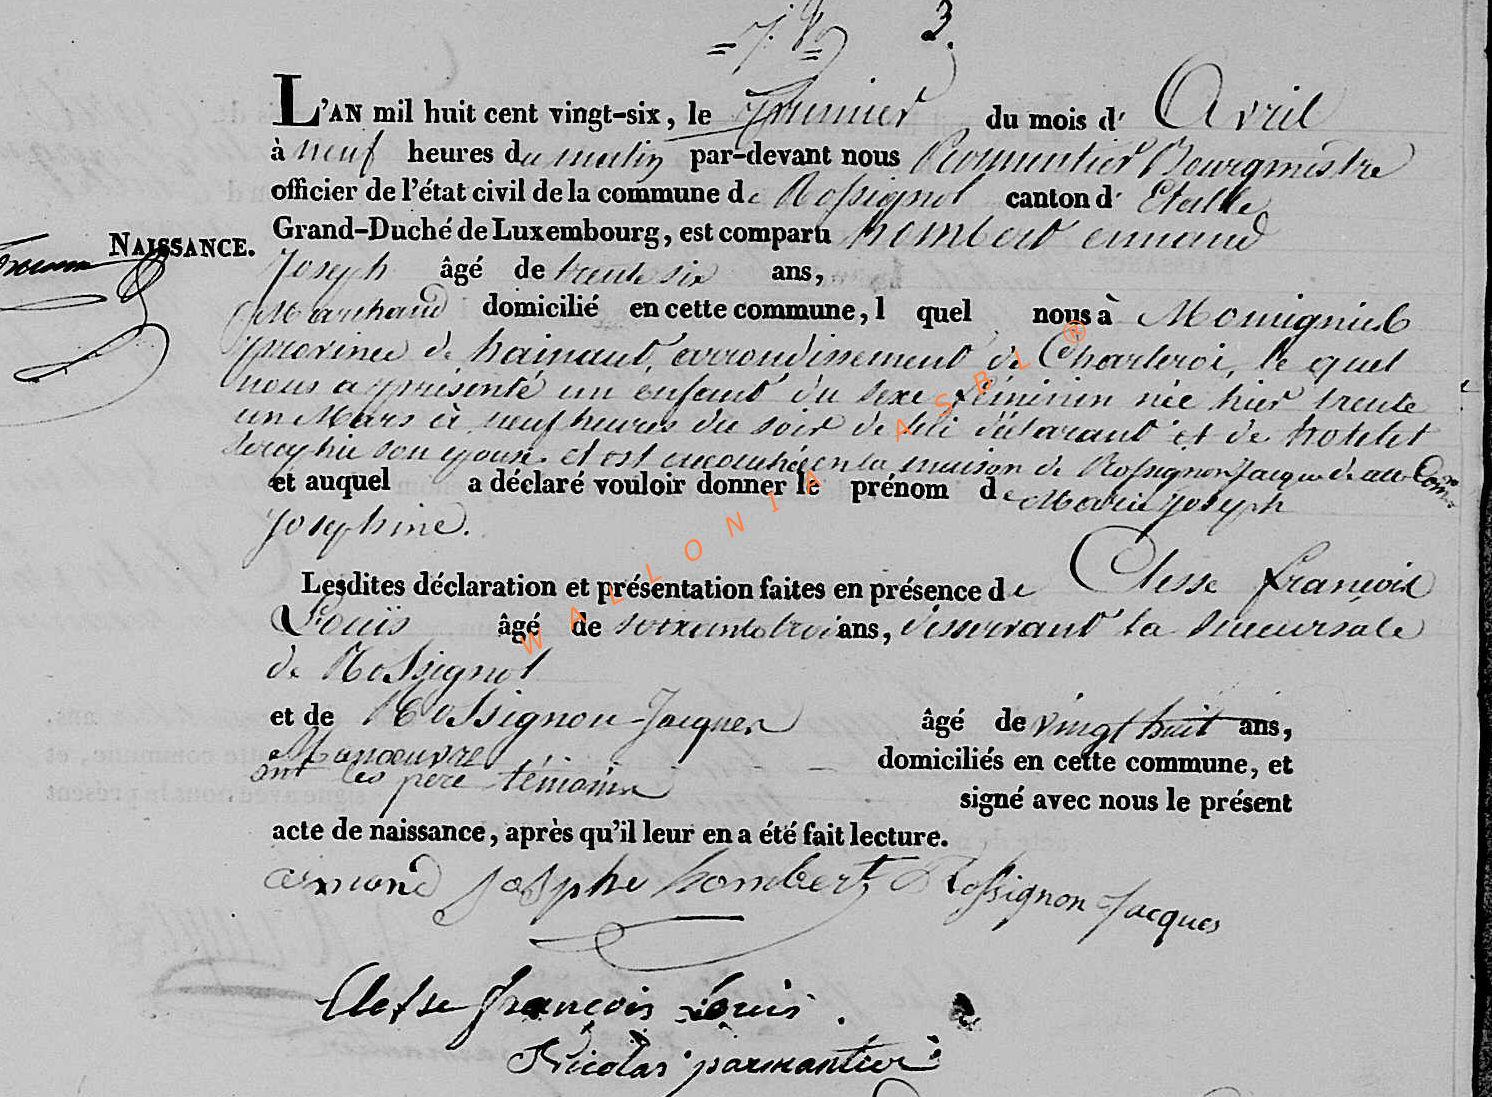 3.
L'AN mil huit cent vingt-six, le premier du mois d' Avril
à neuf heures du matin par-devant nous Parmentier Bourgmestre
officier de l'état civil de la commune de Rossignol canton d' Etalle
NAISSANCE. Grand-Duché de Luxembourg, est comparu hombert armand
Joseph âgé de trente six ans,
Marchand domicilié en cette commune, l quel nous à Momignies
province de hainaut, arrondissement de Charleroi, le quel
nous a présenté un enfant du sexe féminin née hier trente
un Mars à neuf heures du soir de lui déclarant et de hotelet
Seraphie son epouse et est accouchée en la maison de Rossignon Jacques de cette Com.
et auquel a déclaré vouloir donner le prénom de Marie Joseph
Josephine.
Lesdites déclaration et présentation faites en présence de Clesse françois
Louis âgé de soixante trois ans, désservant la succursale
de Rossignol
et de Rossignon Jacques âgé de vingt huit ans,
Manoeuvre domiciliés en cette commune, et
ont les père témoins signé avec nous le présent
acte de naissance, après qu'il leur en a été fait lecture.
armond Josphe hombert Rossignon Jacques
Clesse françois Louis.
Nicolas parmantier
WALLONIA ASBL ®